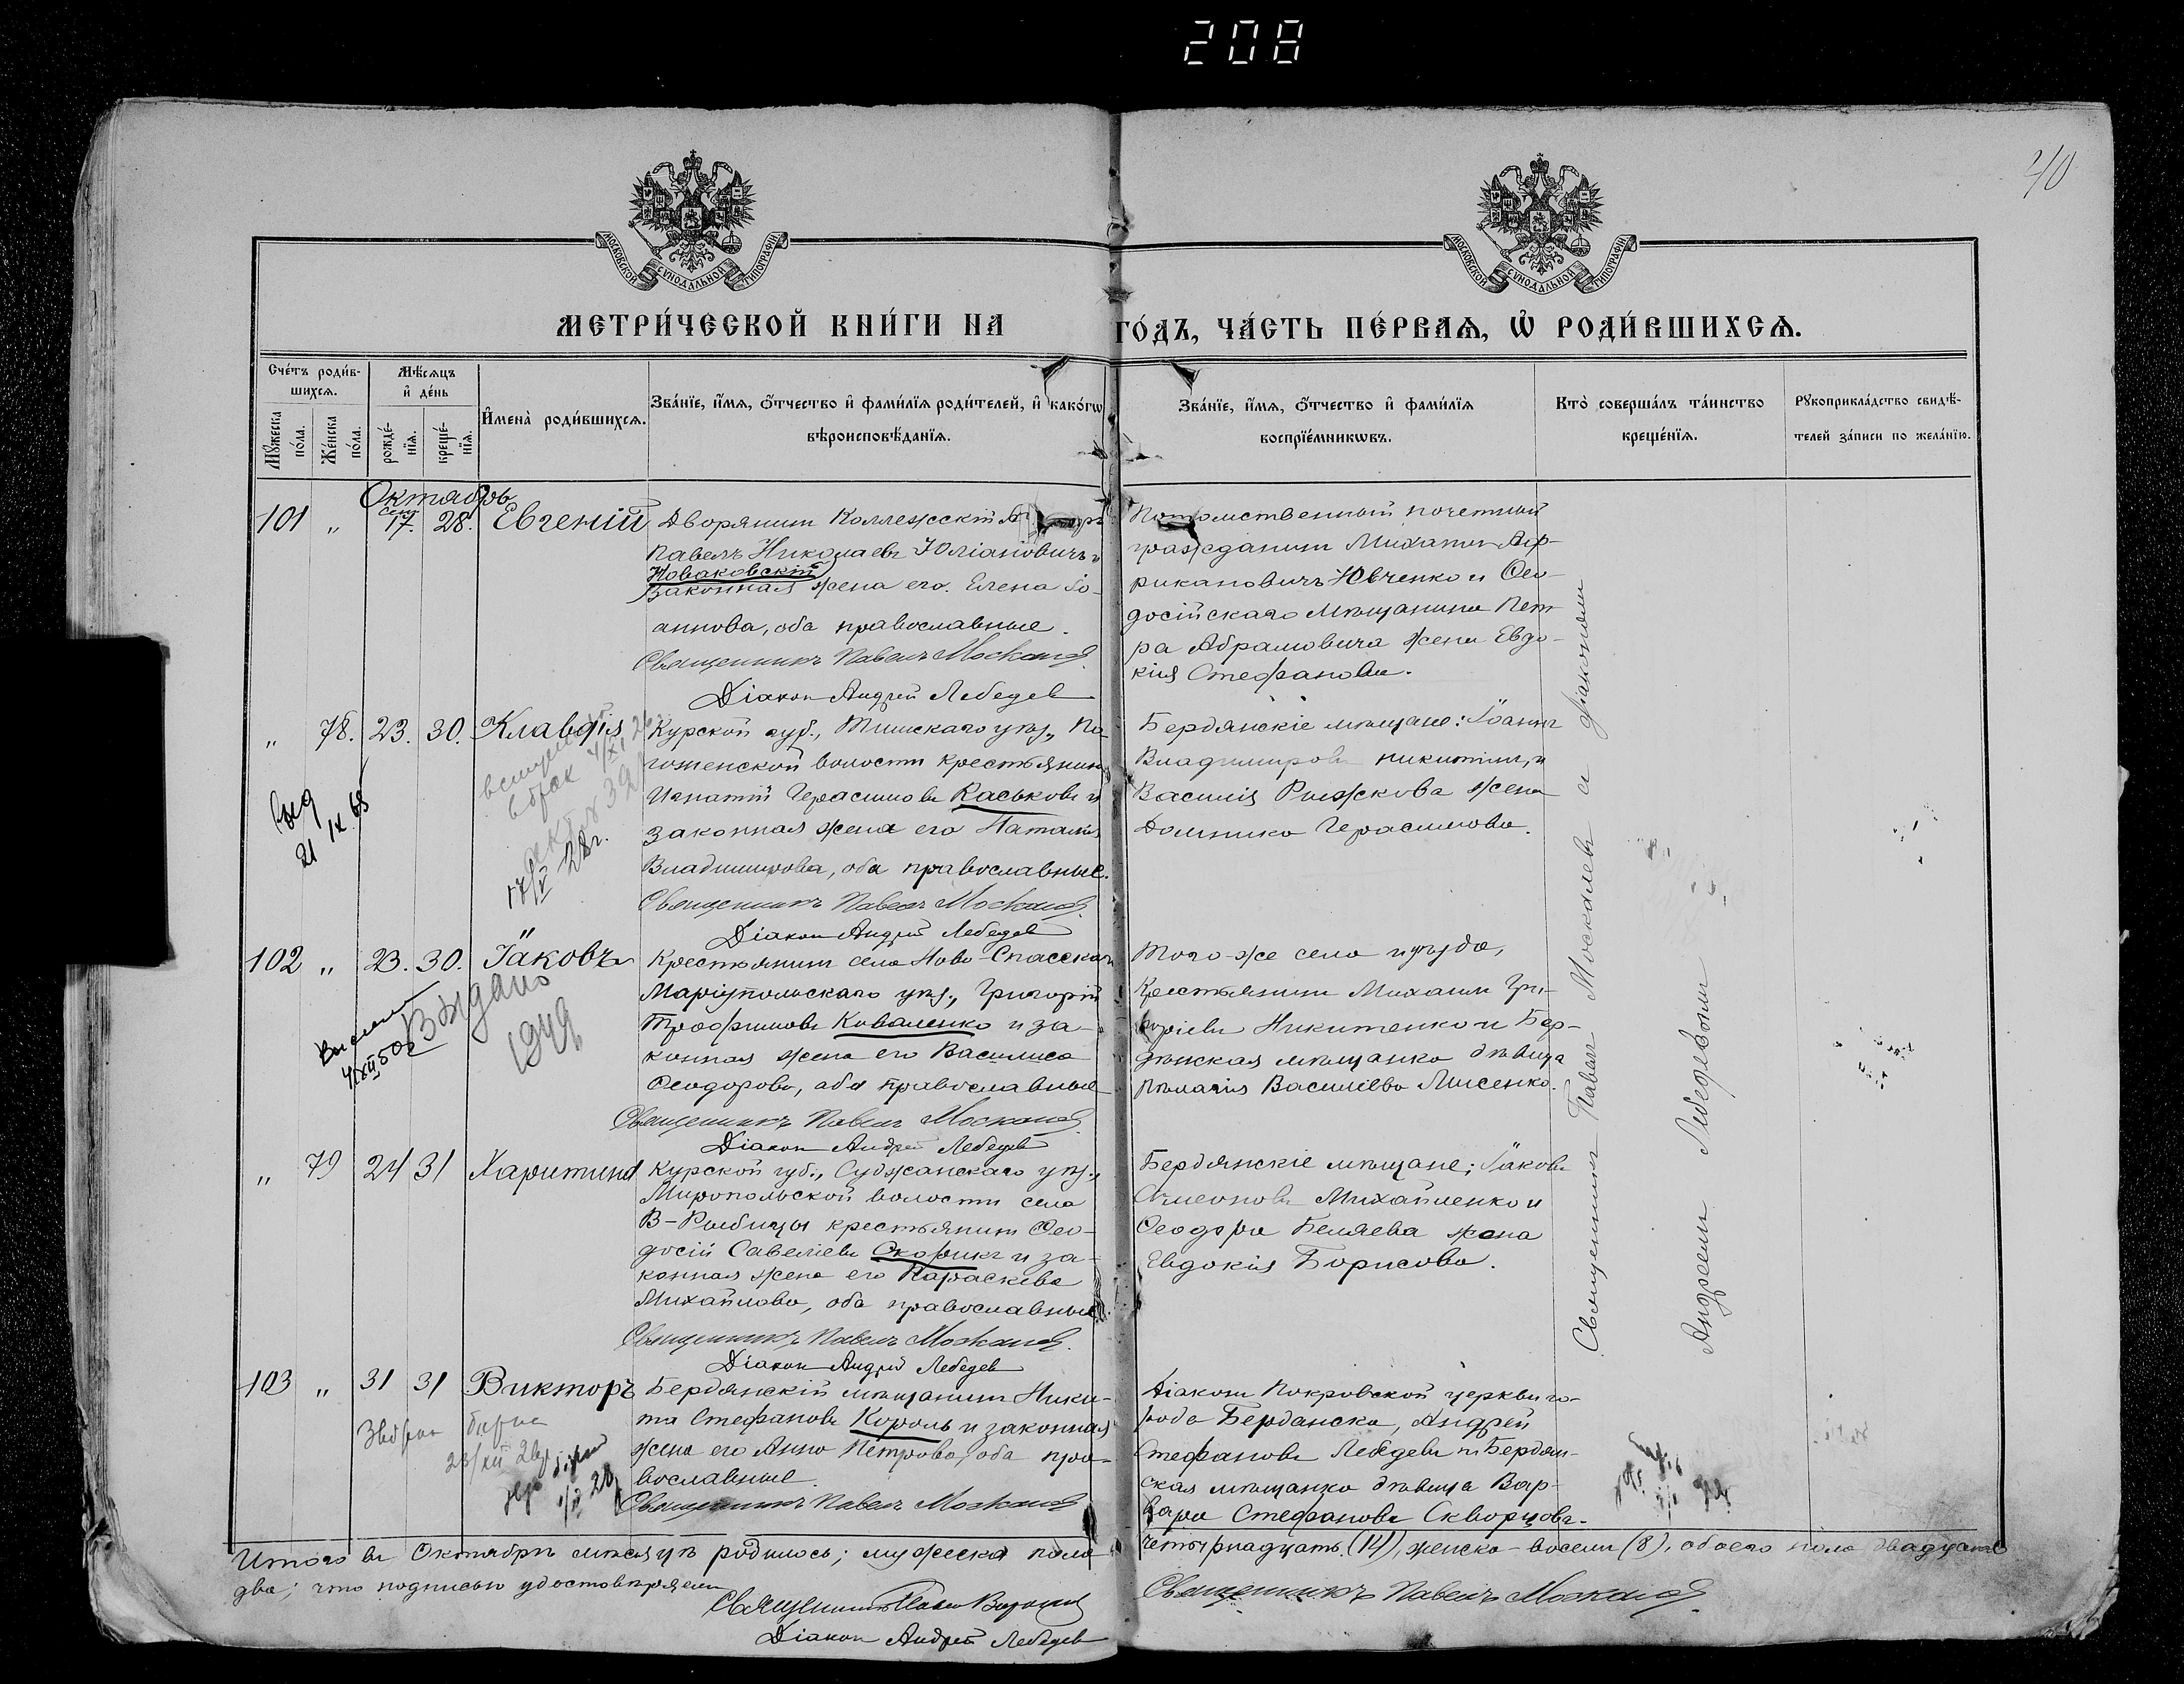 208
40
МОСКОВСКОЙ СУНОДАЛЬНОЙ ТИПОГРАФІИ
МОСКОВСКОЙ СУНОДАЛЬНОЙ ТИПОГРАФІИ
МЕТРИ́ЧЕСКОЙ КНИ́ГИ НА ГО́ДЪ, ЧА́СТЬ ПЕ́РВАѦ, Ѡ҆ РОДИ́ВШИХСѦ.
Счéтъ роди́в-
шихсѧ.
Мꙋ́жеска по́ла.
Же́нска по́ла.
Мѣ́сѧцъ
и҆ де́нь
рожде́-
нїѧ.
креще́-
нїѧ.
И҆мена̀ роди́вшихсѧ.
Зва́нїе, и҆́мѧ, ѻ҆́тчество и҆ фами́лїѧ роди́телей, и҆ како́гѡ
вѣроисповѣ́данїѧ.
Зва́нїе, и҆́мѧ, ѻ҆́тчество и҆ фами́лїѧ
воспрїе́мникѡвъ.
Кто̀ соверша́лъ та́инство
креще́нїѧ.
Рꙋкоприкла́дство свидѣ́-
телей за́писи по жела́нїю.
Октябрь
101 „ Сент 17. 28. Евгеній
Дворянинъ Коллежскій
Павелъ Николаевъ Юліановичъ и
Новаковскій
законная жена его Елена Іо-
аннова, оба православные.
Священникъ Павелъ Москалев
Діаконъ Андрей Лебедев
Потомственный почетный
гражданинъ Михаилъ Аф-
рикановичъ Ювченко и Ѳео-
досійскаго мѣщанина Пет-
ра Абрамовича жена Евдо-
кія Стефанова.
„ 78. 23. 30. Клавдія
17/V 28г.
21 IX 65
Курской губ., Тимскаго уѣз., По-
гоженской волости крестьянинъ
Игнатій Герасимовъ Каськовъ и
законная жена его Наталія
Владимірова, оба православные.
Священникъ Павелъ Москалев
Діаконъ Андрей Лебедев
Бердянскіе мѣщане: Іоаннъ
Владиміровъ Никитинъ, и
Василія Рыжкова жена
Домника Герасимова.
102 „ 23. 30. Іаковъ
Выдано
1949
Крестьянинъ села Ново-Спасскаго
Маріупольскаго уѣз., Григорій
Трофимовъ Коваленко и за-
конная жена его Василиса
Ѳеодорова, оба православные
Священникъ Павелъ Москалев
Діаконъ Андрей Лебедев
Того-же села и уѣзда,
крестьянинъ Михаилъ Гри-
горіевъ Никитенко и Бер-
дянская мѣщанка дѣвица
Пелагія Василіева Лисенко.
„ 79 24 31 Харитина
Курской губ., Суджанскаго уѣз.,
Миропольской волости села
В-Рыбицы крестьянинъ Ѳео-
досій Савеліевъ Скорикъ и за-
конная жена его Параскева
Михайлова, оба православные.
Священникъ Павелъ Москалев
Діаконъ Андрей Лебедев
Бердянскіе мѣщане; Іаковъ
Симеоновъ Михайленко и
Ѳеодора Беляева жена
Евдокія Борисова.
103 „ 31 31 Викторъ
Бердянскій мѣщанинъ Ники-
та Стефановъ Король и законная
жена его Анна Петрова, оба пра-
вославные.
Священникъ Павелъ Москалев
Діаконъ Покровской церкви го-
рода Бердянска, Андрей
Стефановъ Лебедевъ и Бердян-
ская мѣщанка дѣвица Вар-
вара Стефанова Скворцова.
Священникъ Павелъ Москалевъ и діакономъ
Андреемъ Лебедевымъ
Итого въ Октябрѣ мѣсяцѣ родилось; мужеска пола четырнадцать (14), женска - восемь (8), обоего пола двадцать
два; что подписью удостовѣряемъ
Священникъ
Діаконъ Андрей Лебедев
Священникъ Павелъ Москалев